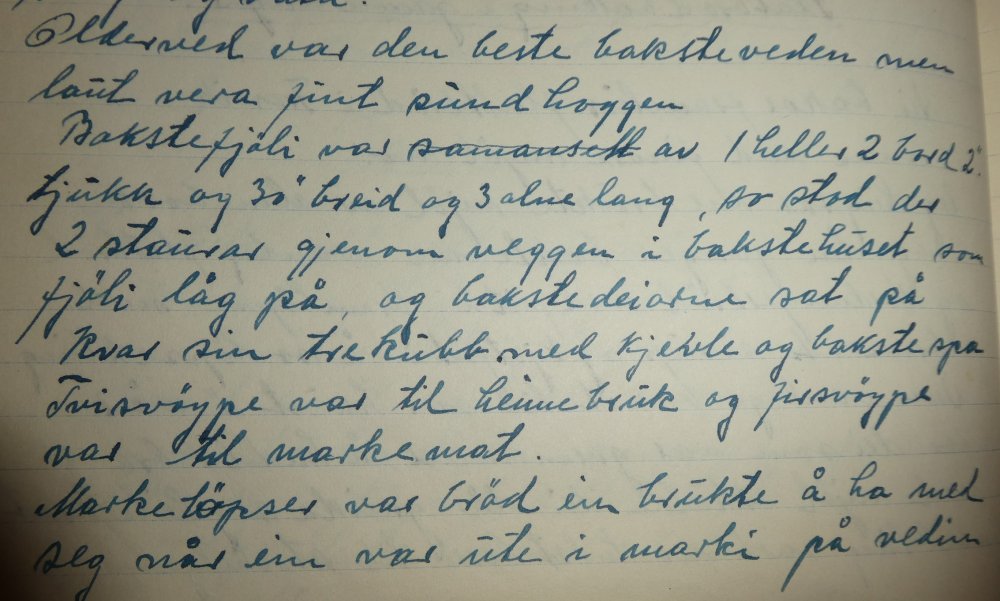 Olderved var den beste baksteveden men
laut vera fint sundhoggen
Bakstefjöli var samansett av 1 heller 2 bord 2"
tjukk og 30" breid og 3 alne lang, so stod der
2 staurar gjenom veggen i bakstehuset som
fjöli låg på, og bakstedeiorne sat på
kvar sin trekubb med kjevle og bakstespa
Tvisvöype var til heimebruk og firsvöype
var til markemat.
Marke var bröd ein brukte å ha med
seg når ein var ute i marki på vedin